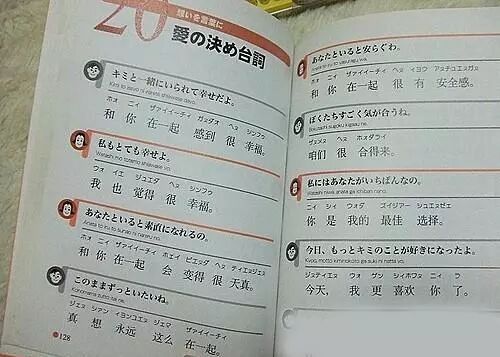 20
想いを言葉に
愛の決め台詞
キミと一緒にいられて幸せだよ。
Kimi to issyo ni rarete shiawase dayo.
ホォ ニィ ヅァイイーチィ ガヌダオ ヘェ シンフウ
和 你 在一起 感到 很 幸福。
私もとても幸せよ。
Watashi mo totemo shiawase yo.
ウォ イエ ジュエダ ヘェ シンフウ
我 也 觉得 很 幸福。
あなたといると素直になれるの。
Anata to iru to sunao ni nareru no.
ホォ ニィ ヅァイイーチィ ホェイ ビエッダ ヘェ ティエジェヌ
和 你 在一起 会 变得 很 天真。
このままずっといたいね。
Konomama zutto itai ne.
ジェヌ シアン イヨンユエヌ ジェマ ヅァイイーチィ
真 想 永远 这么 在一起。
128
あなたといると安らぐわ。
Anata to iru to yasuragu wa.
和 你 在一起 很 有 安全感。
ぼくたちすごく気が合うね。
Bokutachi sugoku kigaau ne.
ヅァメヌ ヘェ ホォダライ
咱们 很 合得来。
私にはあなたがいちばんなの。
Watashi niwa anata ga ichiban nano.
ニィ シィ ウォダ ヅイジアー ジュエヌゼェ
你 是 我的 最佳 选择。
今日、もっとキミのことが好きになったよ。
Kyoo, motto kiminokoto ga suki ni natta yo.
ジヌティエヌ ウォ ゲン シィホワヌ ニィ ラ
今天， 我 更 喜欢 你 了。